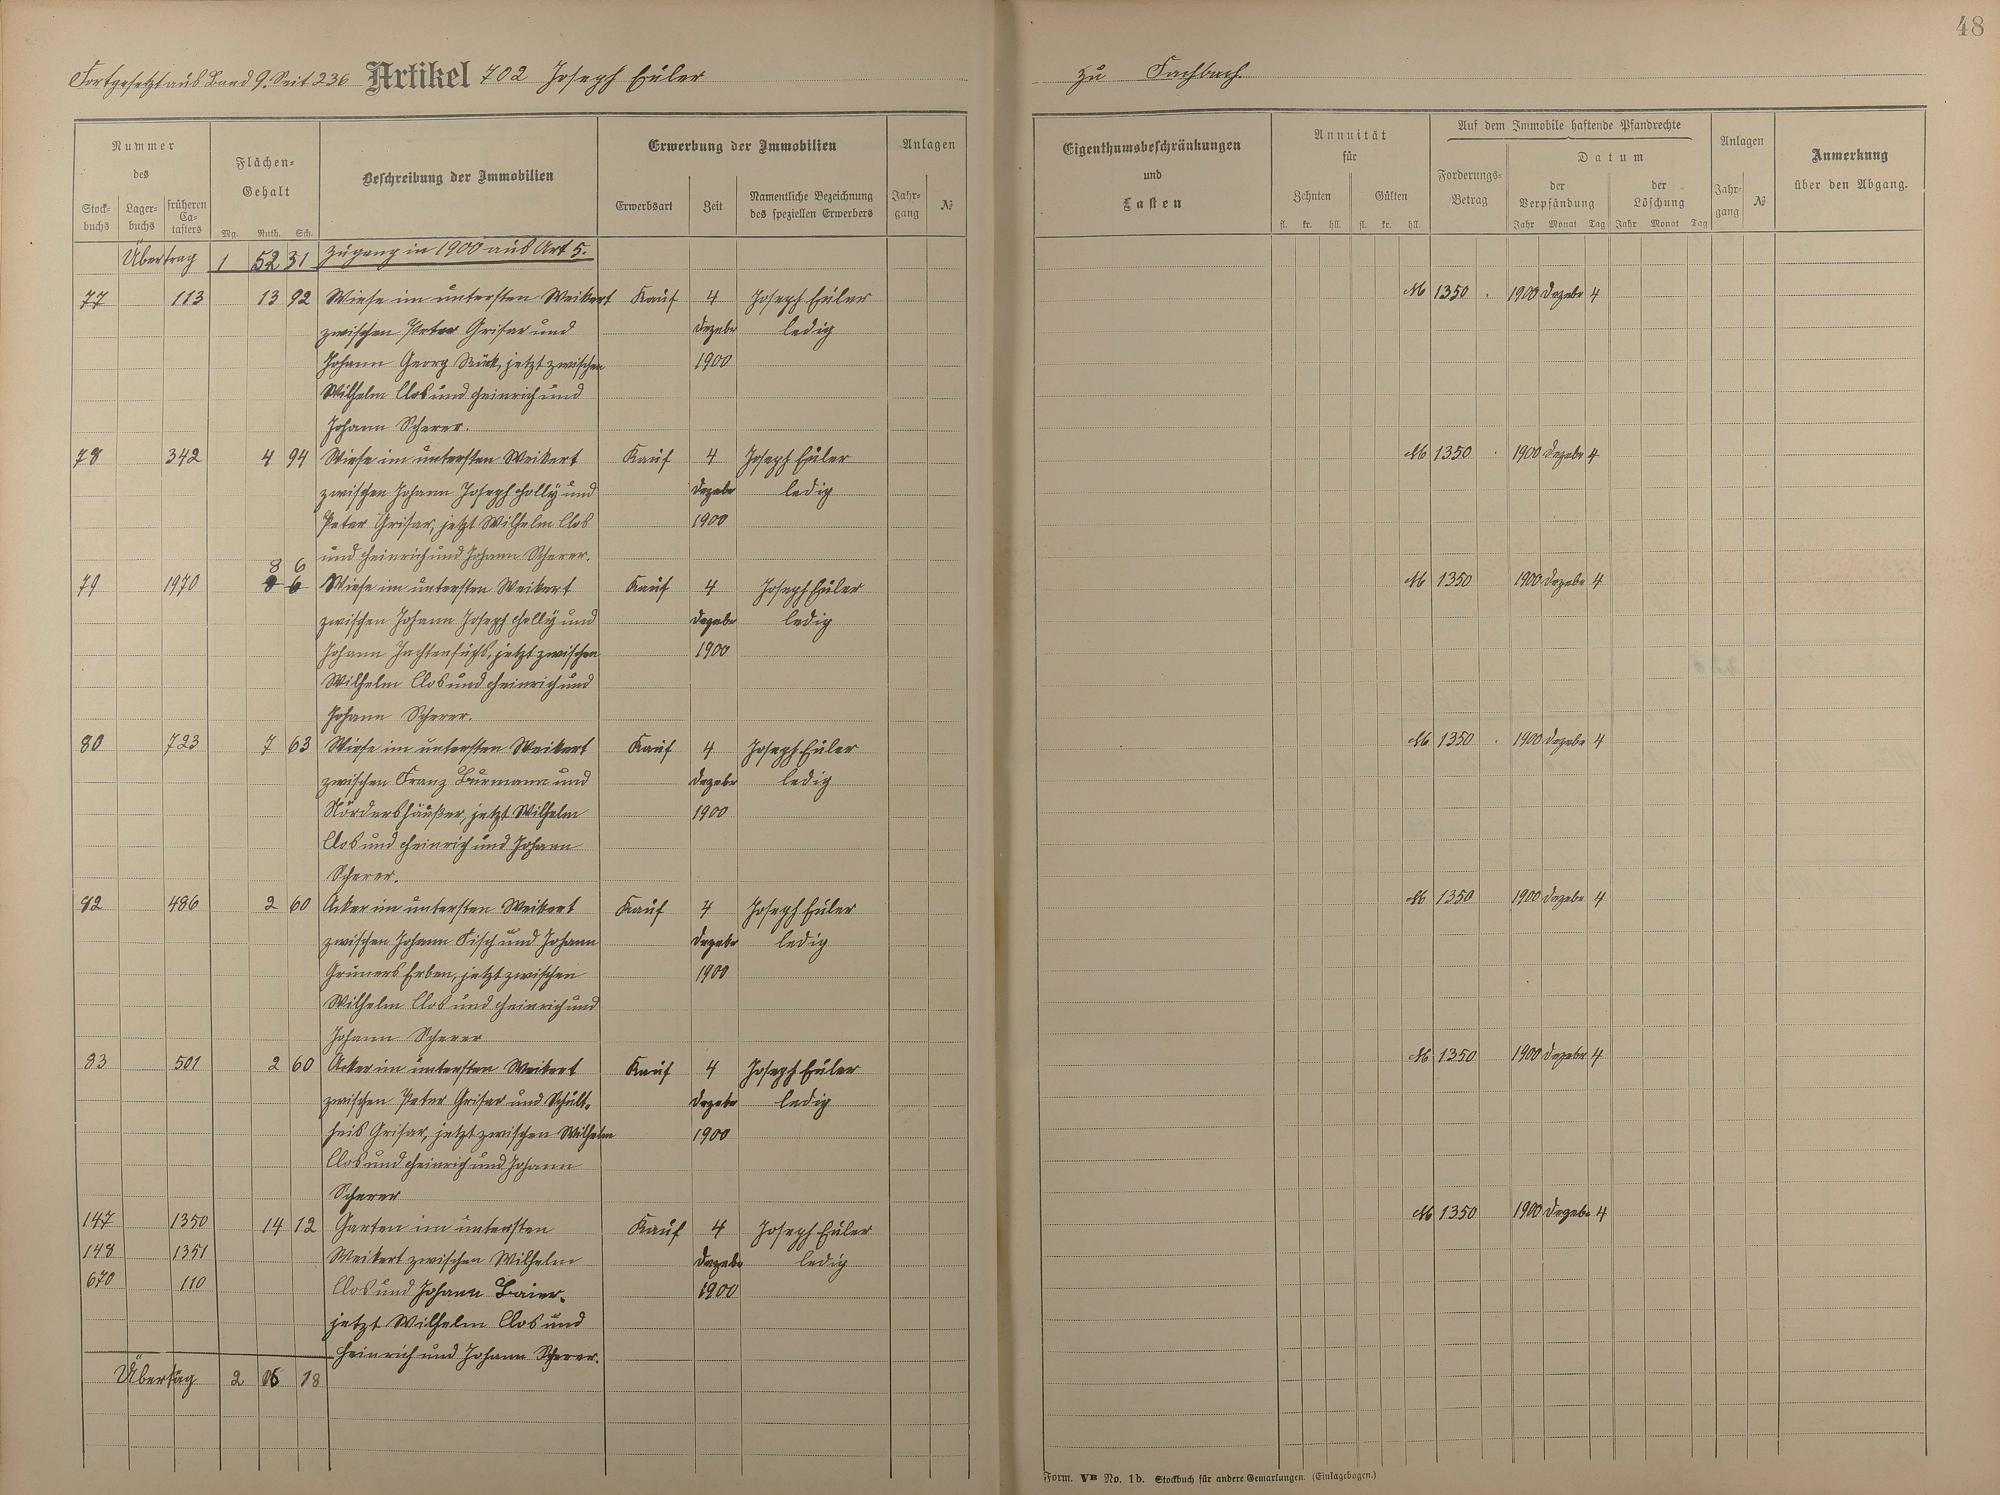 48
Fortgesetzt aus Band 9. Seit 236 Artikel 702 Joseph Euler
zu Fachbach.
Nummer
des
Stock-
buchs
Lager-
buchs
früheren
Ca-
tasters
Flächen-
Gehalt
Mg. Ruth. Sch.
Beschreibung der Immobilien
Erwerbung der Immobilien
Erwerbsart
Zeit
Namentliche Bezeichnung
des speziellen Erwerbers
Anlagen
Jahr-
gang
№
Eigenthumsbeschränkungen
und
Lasten
Annuität
für
Zehnten Gülten
fl. kr. hll. fl. kr. hll.
Auf dem Immobile haftende Pfandrechte
Forderungs-
Betrag
Datum
der
Verpfändung
der
Löschung
Jahr Monat Tag Jahr Monat Tag
Anlagen
Jahr-
gang
№
Anmerkung
über den Abgang.
Übertrag 1 52 31 Zugang in 1900 aus Art 5.
77 113 13 92 Wiese im untersten Weikert Kauf 4 Joseph Euler M 1350 . 1900 Dezebr 4
zwischen Peter Grisar und Dezebr ledig
Johann Georg Rück, jetzt zwischen 1900
Wilhelm Clos und Heinrich und
Johann Scherer.
78 342 4 94 Wiese im untersten Weikert Kauf 4 Joseph Euler M 1350 . 1900 Dezebr 4
zwischen Johann Joseph Holly und Dezebr ledig
Peter Grisar, jetzt Wilhelm Clos 1900
und Heinrich und Johann Scherer.
8 6
79 1970 8 6 Wiese im untersten Weikert Kauf 4 Joseph Euler M 1350 1900 Dezebr 4
zwischen Johann Joseph Holly und Dezebr ledig
Johann Jachtenfuchs, jetzt zwischen 1900
Wilhelm Clos und Heinrich und
Johann Scherer.
80 723 7 63 Wiese im untersten Weikert Kauf 4 Joseph Euler M 1350 . 1900 Dezebr 4
zwischen Franz Burmann und Dezebr ledig
Nördershäußer, jetzt Wilhelm 1900
Clos und Heinrich und Johann
Scherer.
82 486 2 60 Acker im untersten Weikert Kauf 4 Joseph Euler M 1350 1900 Dezebr 4
zwischen Johann Fisch und Johann Dezebr ledig
Grüners Erben, jetzt zwischen 1900
Wilhelm Clos und Heinrich und
Johann Scherer
83 501 2 60 Acker im untersten Weikert Kauf 4 Joseph Euler M 1350 1900 Dezebr 4
zwischen Peter Grisar und Schult- Dezebr ledig
heis Grisar, jetzt zwischen Wilhelm 1900
Clos und Heinrich und Johann
Scherer
147 1350 14 12 Garten im untersten Kauf 4 Joseph Euler M 1350 1900 Dezebr 4
148 1351 Weikert zwischen Wilhelm Dezebr ledig
670 110 Clos und Johann Baier, 1900
jetzt Wilhelm Clos und
Heinrich und Johann Scherer.
Übertrag 2 06 18
Form. VB No. 1b. Stockbuch für andere Gemarkungen. (Einlagebogen.)